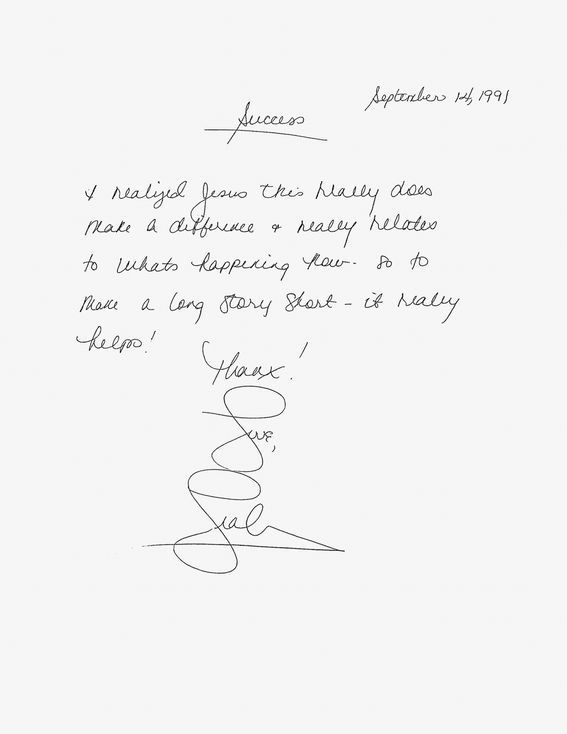 September 14, 1991
Success
I realized Jesus this really does
make a difference + really relates
to whats happening now. So to
make a long story short - it really
helps!
Thanx!
Love,